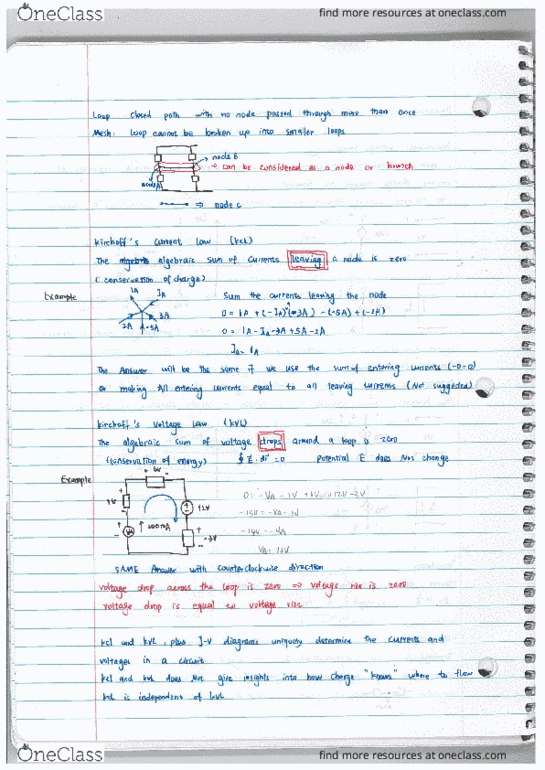 OneClass
find more resources at oneclass.com
Loop closed path with no node passed through more than once
Mesh: Loop cannot be broken up into smaller loops
node B
→ can be considered as a node or branch
node A
⇒ node c
kirchoff's current Law (kcl)
The algebraic sum of currents leaving a node is zero
(conservation of charge)
Example
1A IA
2A -5A 3A
Sum the currents leaving the node
0 = 1A + (-IA) (-3A) - (-5A) + (-2A)
0 = 1A - IA - 3A + 5A - 2A
IA = 1A
The Answer will be the same if we use the sum of entering currents (-0=0)
or making All entering currents equal to all leaving currents (Not suggested)
kirchoff's Voltage Law (KVL)
The algebraic sum of voltage drops around a loop is zero
(conservation of energy) ∮ E · dr = 0 Potential E does Not change
Example
1V
12V
200mA
VA
-3V
SAME Answer with counterclockwise direction
voltage drop across the loop is zero ⇒ voltage rise is zero
voltage drop is equal to voltage rise
kcl and kvl, plus I-V diagrams uniquely determine the currents and
voltages in a circuit
kcl and kvl does Not give insights into how charge "knows" where to flow
kcl is independent of kvl
OneClass
find more resources at oneclass.com